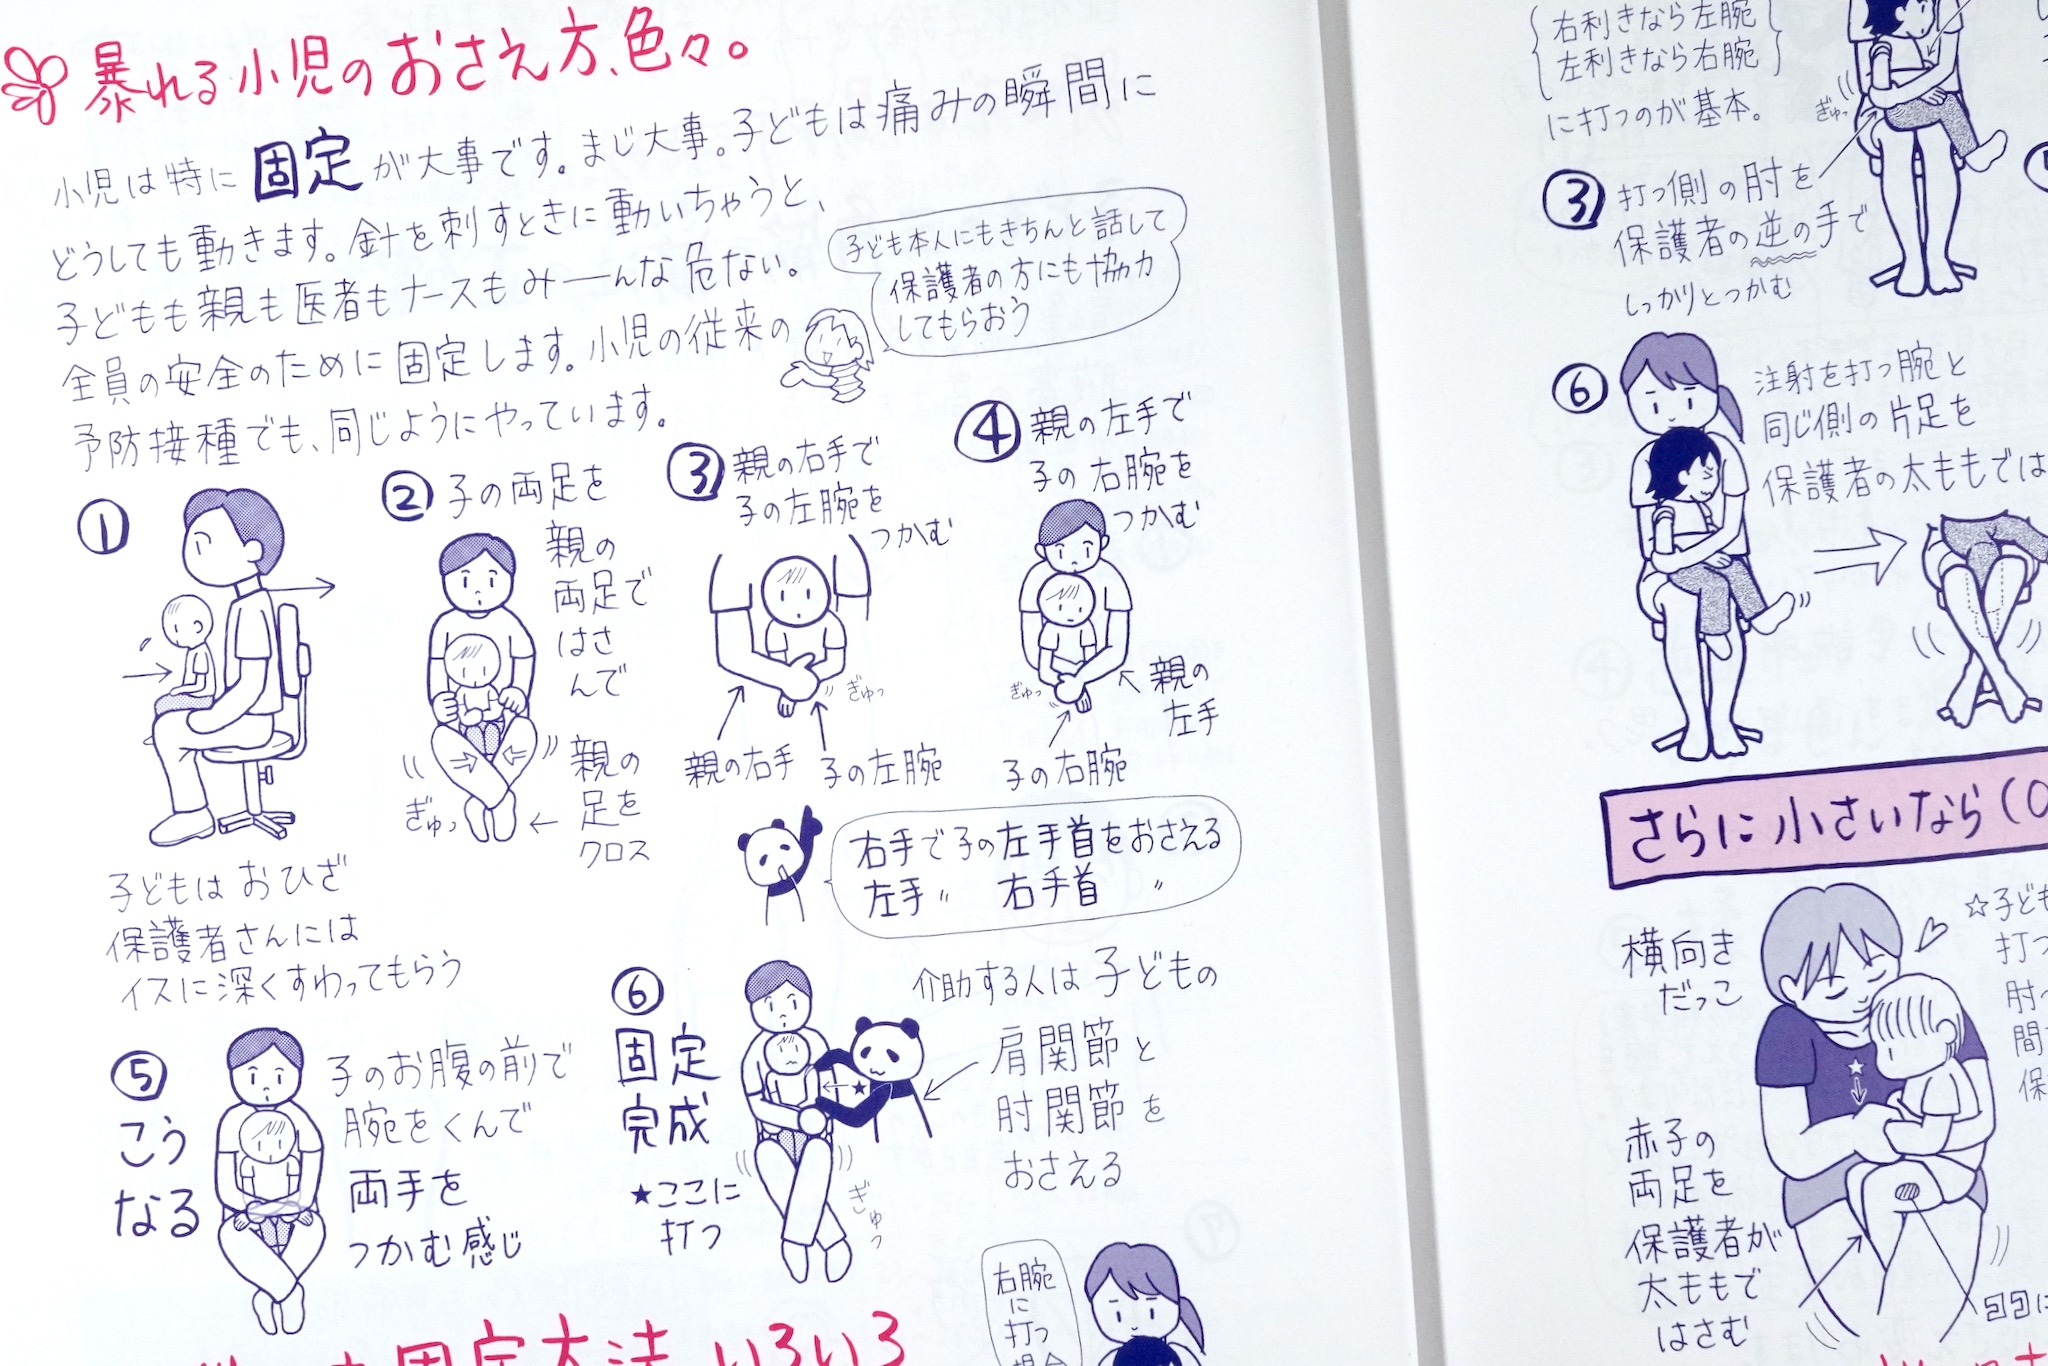 暴れる小児のおさえ方、色々。
小児は特に固定が大事です。まじ大事。子どもは痛みの瞬間に
どうしても動きます。針を刺すときに動いちゃうと、
子どもも親も医者もナースもみーんな危ない。
全員の安全のために固定します。小児の従来の
予防接種でも、同じようにやっています。
子ども本人にもきちんと話して
保護者の方にも協力
してもらおう
①
子どもはおひざ
保護者さんには
イスに深くすわってもらう
②子の両足を
親の
両足で
はさ
んで
ぎゅっ
親の
足を
クロス
③親の右手で
子の左腕を
つかむ
ぎゅっ
親の右手
子の左腕
④親の左手で
子の右腕を
つかむ
ぎゅっ
親の
左手
子の右腕
右手で子の左手首をおさえる
左手〃 右手首 〃
⑤
こう
なる
子のお腹の前で
腕をくんで
両手を
つかむ感じ
⑥
固定
完成
★ここに
打つ
★
ぎゅっ
介助する人は子どもの
肩関節と
肘関節を
おさえる
固定方法いろいろ
右腕
に
打つ
場合
右利きなら左腕
左利きなら右腕
に打つのが基本。
ぎゅっ
③打つ側の肘を
保護者の逆の手で
しっかりとつかむ
⑥
注射を打つ腕と
同じ側の片足を
保護者の太ももでは
さらに小さいなら(0
横向き
だっこ
☆子ども
打つ
肘
間
保
赤子の
両足を
保護者が
太ももで
はさむ
ココに